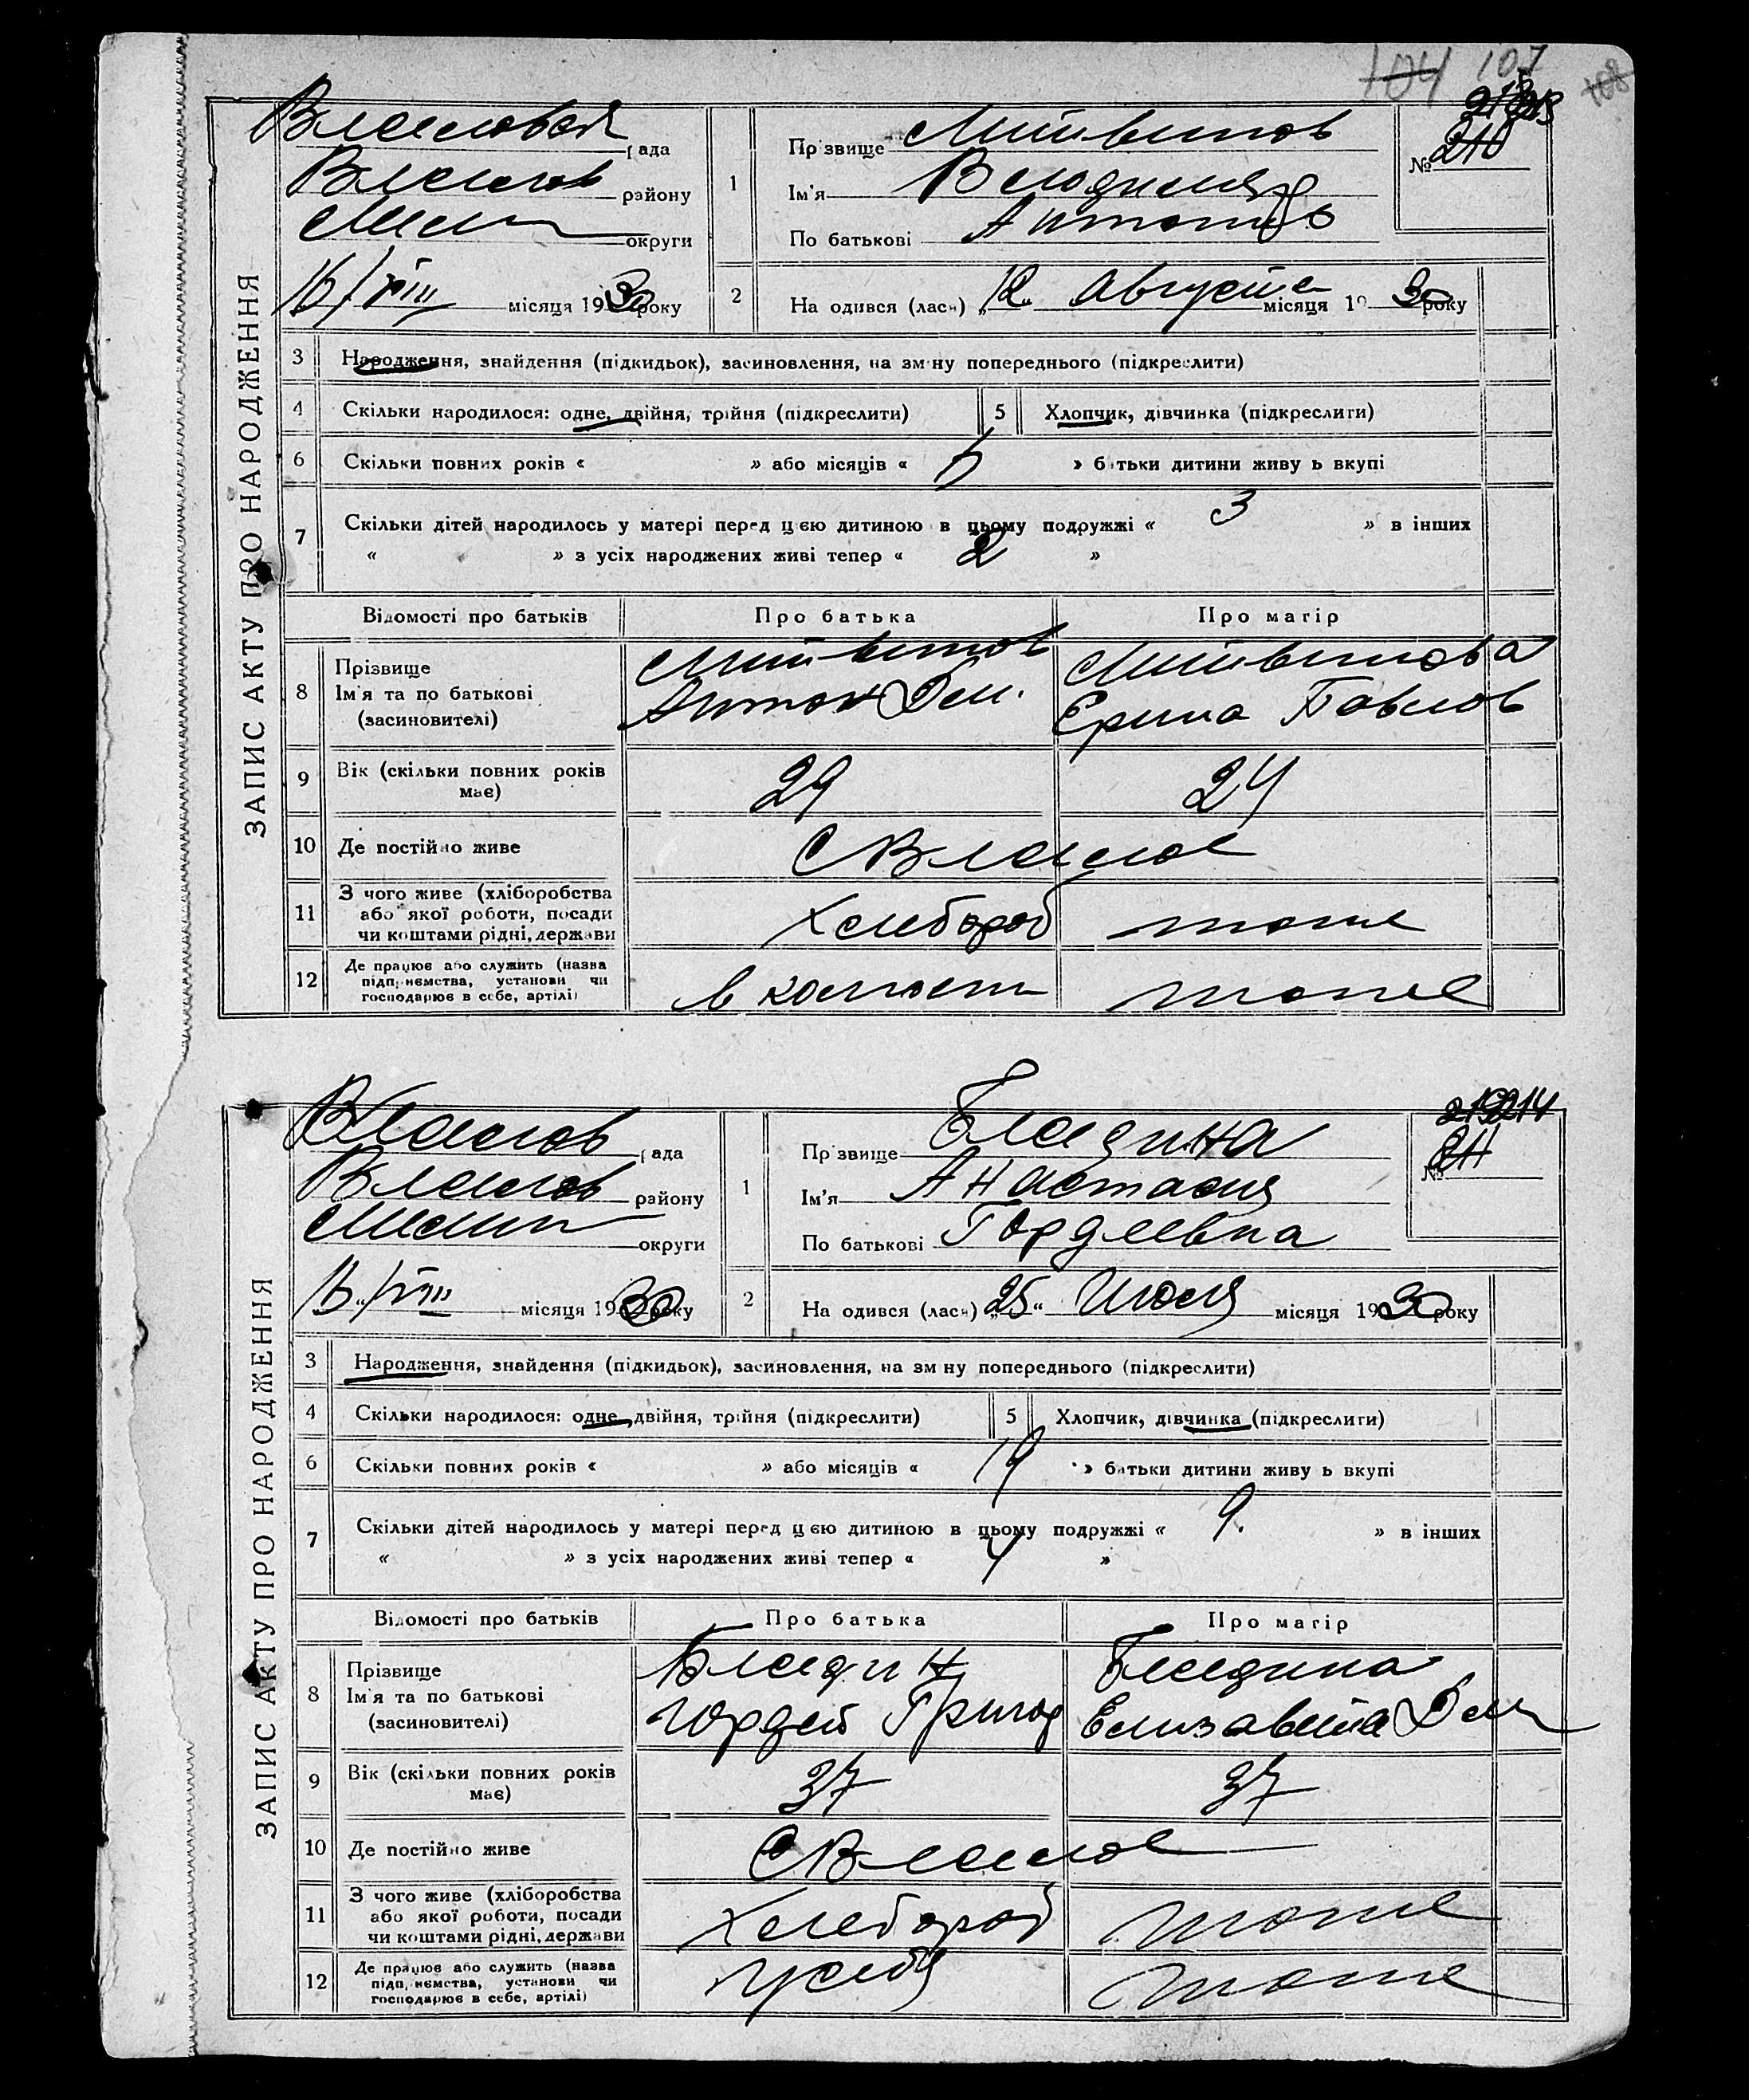 104 107 108
213
Власовая рада
Прізвище Литвинов
№ 210
Власов району
1
Ім'я Володимир
округи
По батькові Антонов
16/VIII місяця 1930 року
2
Народився (лася) „12“ августа місяця 1930 року
ЗАПИС АКТУ ПРО НАРОДЖЕННЯ
3 Народження, знайдення (підкидьок), засиновлення, на зміну попереднього (підкреслити)
4 Скільки народилося: одне, двійня, трійня (підкреслити) 5 Хлопчик, дівчинка (підкреслити)
6 Скільки повних років « » або місяців « » батьки дитини живуть вкупі
7 Скільки дітей народилось у матері перед цією дитиною в цьому подружжі « 3 » в інших
« » з усіх народжених живі тепер « 2 »
Відомості про батьків Про батька Про матір
8 Прізвище Ім'я та по батькові (засиновителі)
Литвинов Литвинова
Антон Дем. Ерина Павлов
9 Вік (скільки повних років має) 29 24
10 Де постійно живе С Власов
11 З чого живе (хліборобства або якої роботи, посади чи коштами рідні, держави
Хлебороб тоже
12 Де працює або служить (назва підприємства, установи чи господарює в себе, артілі)
в тоже
214
Власов рада
Прізвище Бледина
№ 211
Власов району
1
Ім'я Анастасия
округи
По батькові Гордеевна
/VIII місяця 1930 року
2
Народився (лася) „25“ Июля місяця 1930 року
ЗАПИС АКТУ ПРО НАРОДЖЕННЯ
3 Народження, знайдення (підкидьок), засиновлення, на зміну попереднього (підкреслити)
4 Скільки народилося: одне, двійня, трійня (підкреслити) 5 Хлопчик, дівчинка (підкреслити)
6 Скільки повних років « » або місяців « 19 » батьки дитини живуть вкупі
7 Скільки дітей народилось у матері перед цією дитиною в цьому подружжі « 9. » в інших
« » з усіх народжених живі тепер « 4 »
Відомості про батьків Про батька Про матір
8 Прізвище Ім'я та по батькові (засиновителі)
Бледин Бледина
Гордей Григор Елизавета Дем
9 Вік (скільки повних років має) 37 37
10 Де постійно живе С Власов
11 З чого живе (хліборобства або якої роботи, посади чи коштами рідні, держави
Хлебороб тоже
12 Де працює або служить (назва підприємства, установи чи господарює в себе, артілі)
У себя тоже